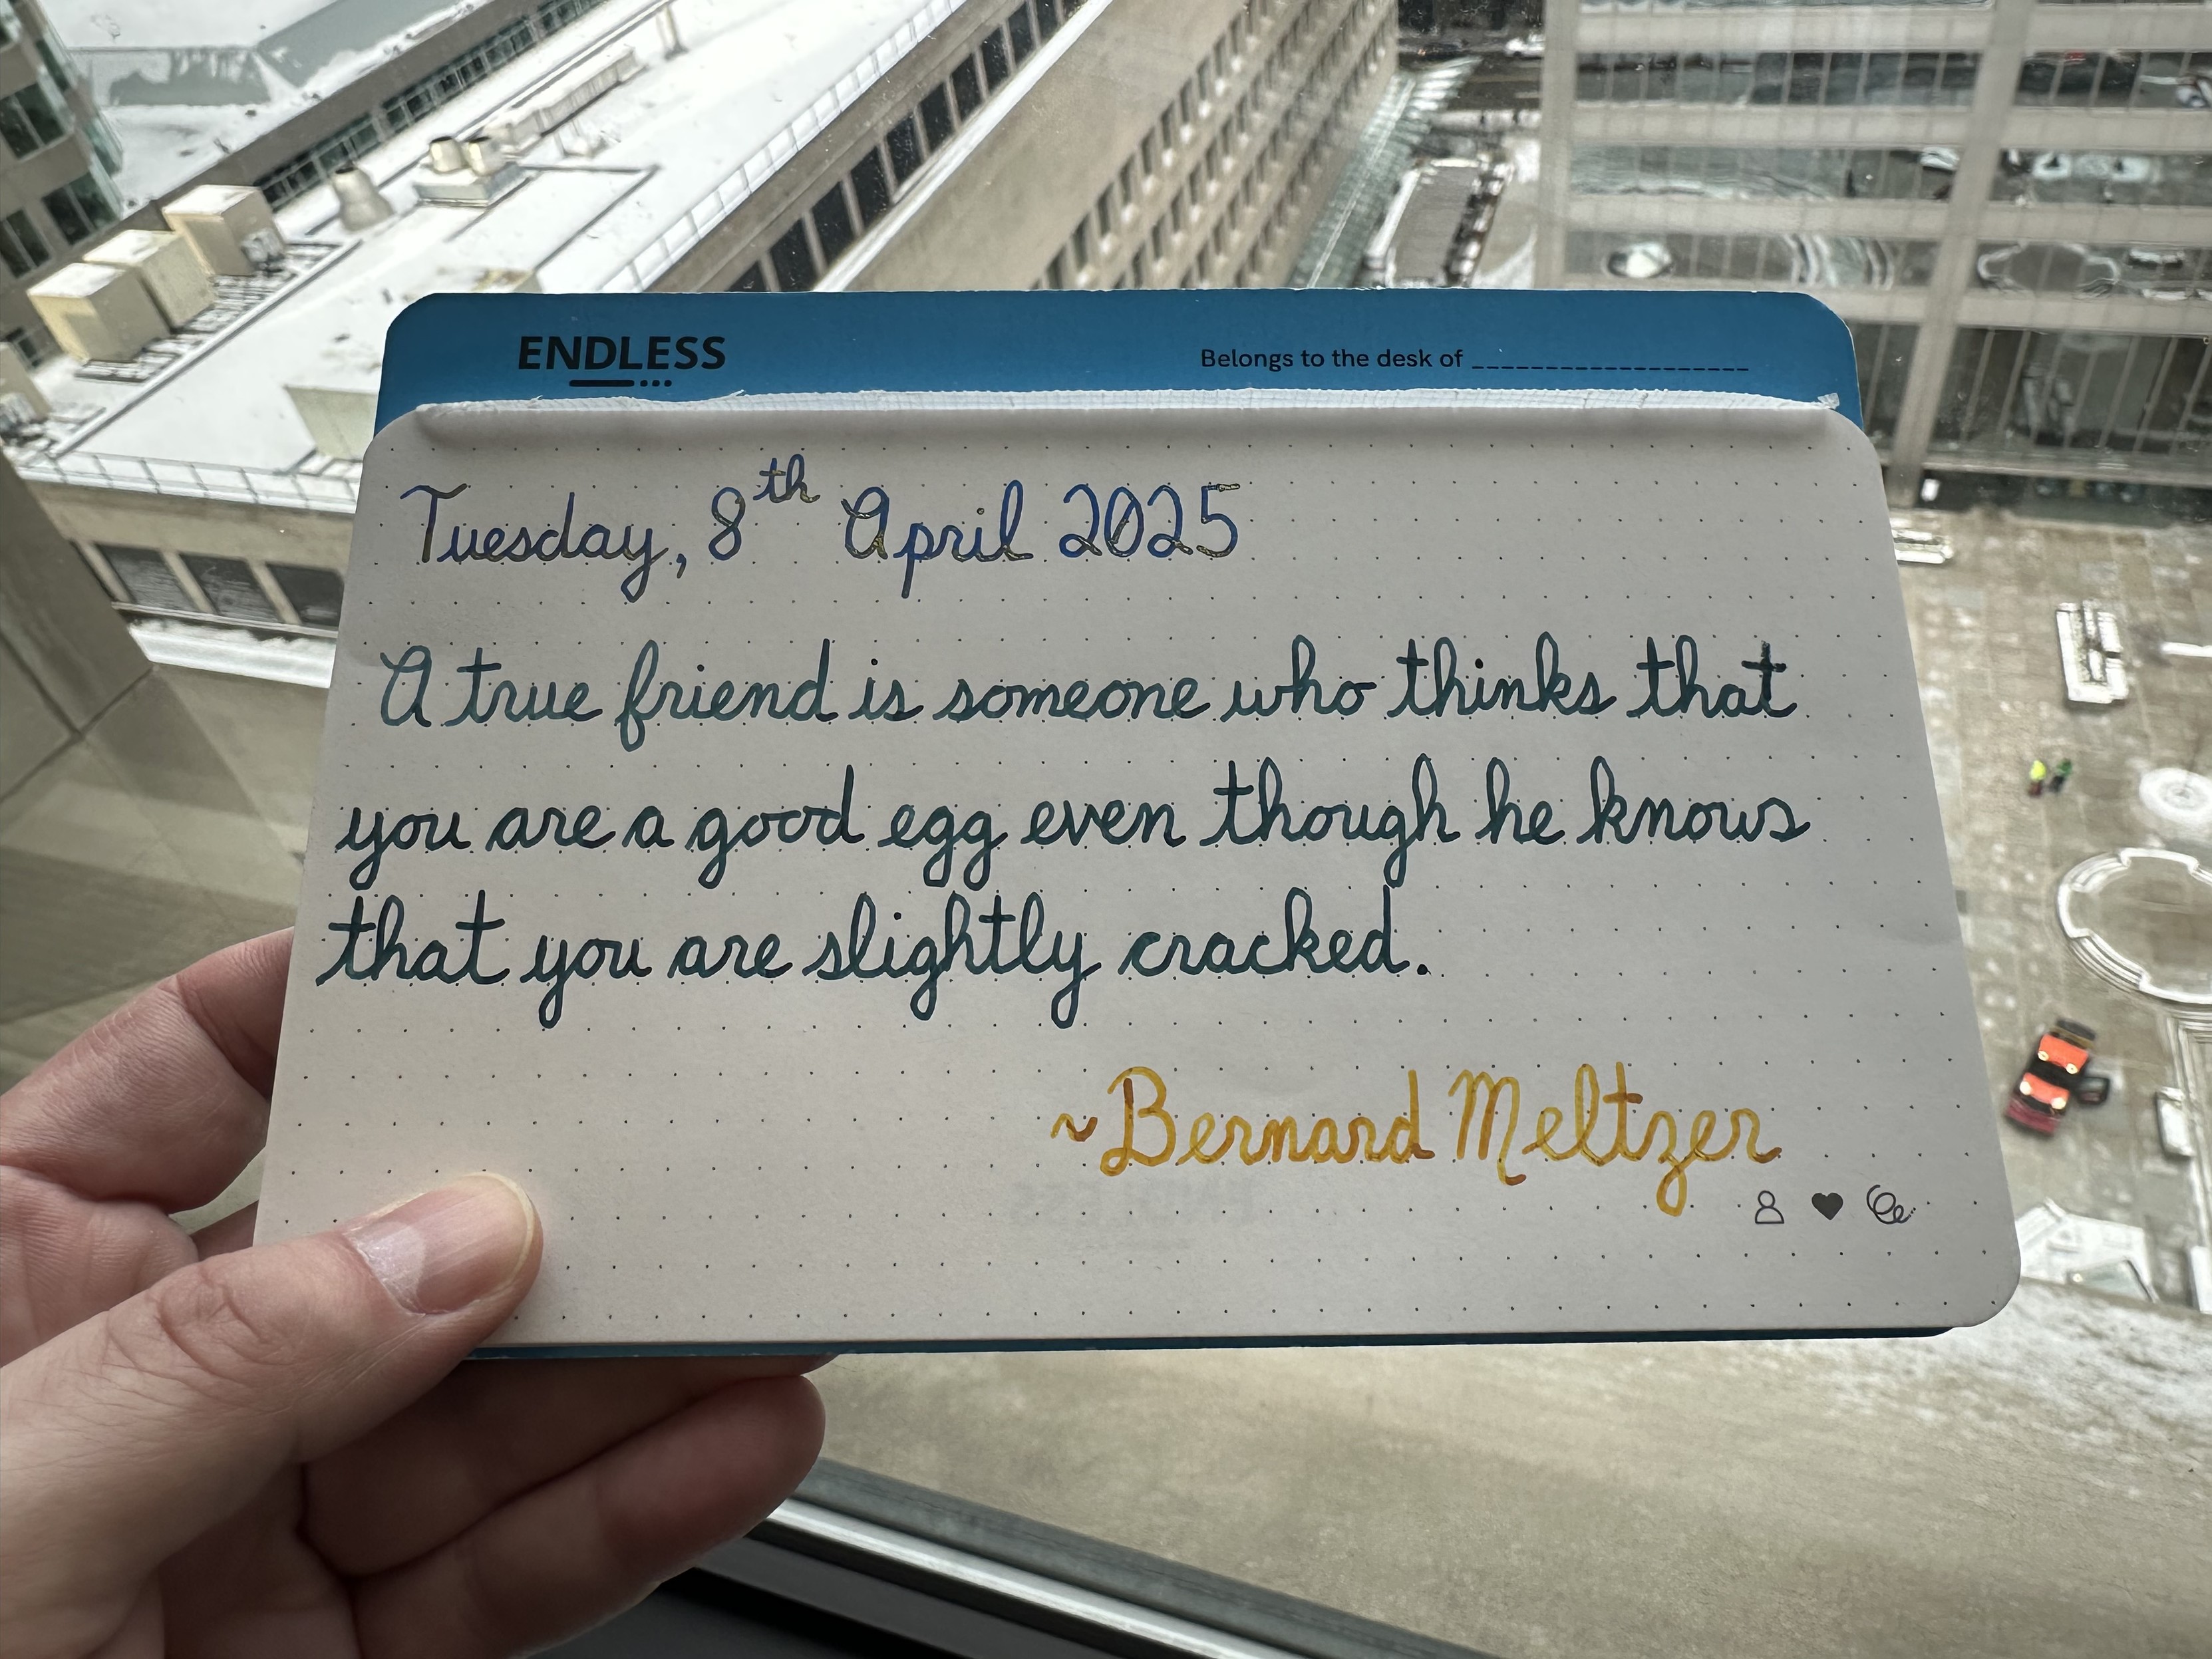 ENDLESS
Belongs to the desk of ____________________
Tuesday, 8th April 2025
A true friend is someone who thinks that
you are a good egg even though he knows
that you are slightly cracked.
~Bernard Meltzer